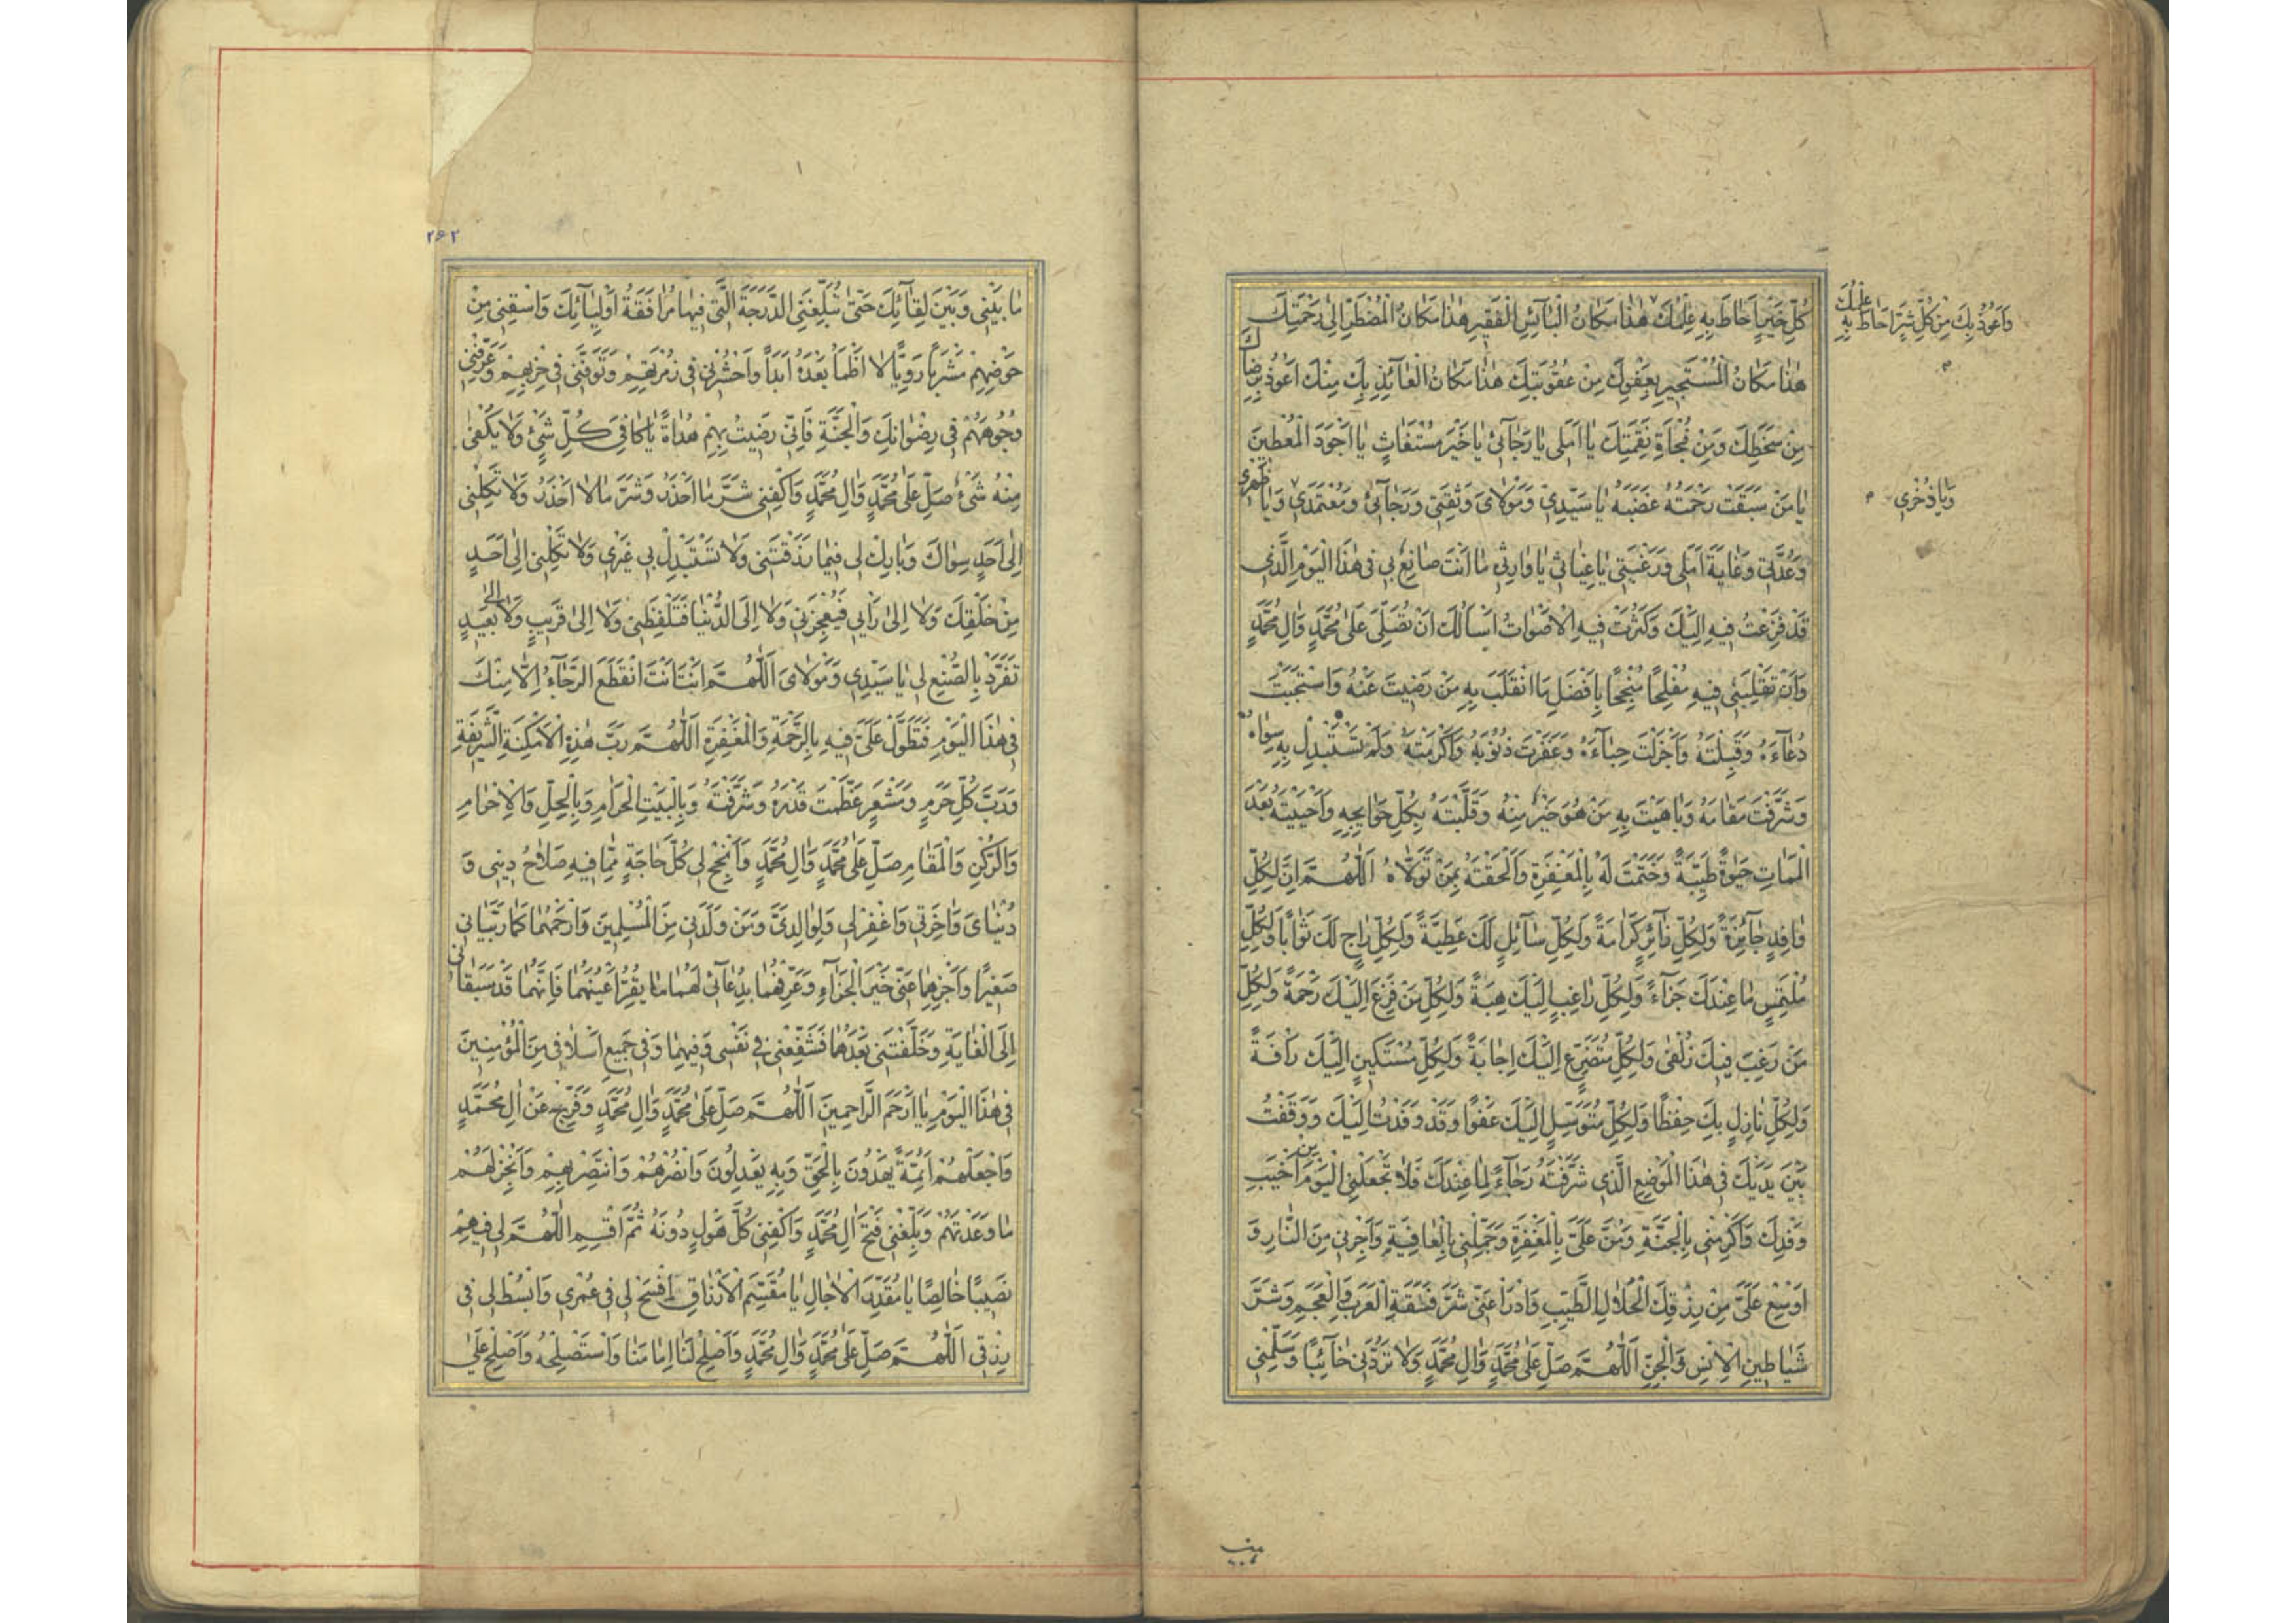 كُلِّ خَيْرٍ اَحَاطَ بِهِ عِلْمُكَ هٰذَا مَكَانُ الْبَآئِسِ الْفَقِيرِ هٰذَا مَكَانُ الْمُضْطَرِّ اِلٰى رَحْمَتِكَ
وَاَعُوذُ بِكَ مِنْ كُلِّ شَرٍّ اَحَاطَ بِهِ عِلْمُكَ
هٰذَا مَكَانُ الْمُسْتَجِيرِ بِعَفْوِكَ مِنْ عُقُوبَتِكَ هٰذَا مَكَانُ الْعَآئِذِ بِكَ مِنْكَ اَعُوذُ بِرِضَاكَ
مِنْ سَخَطِكَ وَمِنْ فُجَاۤةِ نِقْمَتِكَ يَا اَمَلِى يَا رَجَآئِى يَا خَيْرَ مُسْتَغَاثٍ يَا اَجْوَدَ الْمُعْطِينَ
يَا مَنْ سَبَقَتْ رَحْمَتُهُ غَضَبَهُ يَا سَيِّدِى وَمَوْلَاىَ وَثِقَتِى وَرَجَآئِى وَمُعْتَمَدِى وَيَا ظَهْرِى
وَيَا ذُخْرِى
وَعُدَّتِى وَغَايَةَ اَمَلِى وَرَغْبَتِى يَا غِيَاثِى يَا وَارِثِى مَا اَنْتَ صَانِعٌ بِى فِى هٰذَا الْيَوْمِ الَّذِى
قَدْ فَزِعْتُ فِيهِ اِلَيْكَ وَكَثُرَتْ فِيهِ الْاَصْوَاتُ اَسْأَلُكَ اَنْ تُصَلِّىَ عَلٰى مُحَمَّدٍ وَاٰلِ مُحَمَّدٍ
وَاَنْ تَقْلِبَنِى فِيهِ مُفْلِحًا مُنْجِحًا بِاَفْضَلِ مَا انْقَلَبَ بِهِ مَنْ رَضِيتَ عَنْهُ وَاسْتَجَبْتَ
دُعَآءَهُ وَقَبِلْتَهُ وَاَجْزَلْتَ حِبَآءَهُ وَغَفَرْتَ ذُنُوبَهُ وَاَكْرَمْتَهُ وَلَمْ تَسْتَبْدِلْ بِهِ سِوَاهُ
وَشَرَّفْتَ مَقَامَهُ وَبَاهَيْتَ بِهِ مَنْ هُوَ خَيْرٌ مِنْهُ وَقَلَّبْتَهُ بِكُلِّ حَوَايِجِهِ وَاَحْيَيْتَهُ بَعْدَ
الْمَمَاتِ حَيٰوةً طَيِّبَةً وَخَتَمْتَ لَهُ بِالْمَغْفِرَةِ وَاَلْحَقْتَهُ بِمَنْ تَوَلَّاهُ اَللّٰهُمَّ اِنَّ لِكُلِّ
وَافِدٍ جَآئِزَةً وَلِكُلِّ زَآئِرٍ كَرَامَةً وَلِكُلِّ سَآئِلٍ لَكَ عَطِيَّةً وَلِكُلِّ رَاجٍ لَكَ ثَوَابًا وَلِكُلِّ
مُلْتَمِسٍ مَا عِنْدَكَ جَزَآءً وَلِكُلِّ رَاغِبٍ اِلَيْكَ هِبَةً وَلِكُلِّ مَنْ فَزِعَ اِلَيْكَ رَحْمَةً وَلِكُلِّ
مَنْ رَغِبَ فِيكَ زُلْفٰى وَلِكُلِّ مُتَضَرِّعٍ اِلَيْكَ اِجَابَةً وَلِكُلِّ مُسْتَكِينٍ اِلَيْكَ رَاْفَةً
وَلِكُلِّ نَازِلٍ بِكَ حِفْظًا وَلِكُلِّ مُتَوَسِّلٍ اِلَيْكَ عَفْوًا وَقَدْ وَفَدْتُ اِلَيْكَ وَوَقَفْتُ
بَيْنَ يَدَيْكَ فِى هٰذَا الْمَوْضِعِ الَّذِى شَرَّفْتَهُ رَجَآءً لِمَا عِنْدَكَ فَلَا تَجْعَلْنِى الْيَوْمَ اَخْيَبَ
وَفْدِكَ وَاَكْرِمْنِى بِالْجَنَّةِ وَمُنَّ عَلَىَّ بِالْمَغْفِرَةِ وَجَمِّلْنِى بِالْعَافِيَةِ وَاَجِرْنِى مِنَ النَّارِ وَ
اَوْسِعْ عَلَىَّ مِنْ رِزْقِكَ الْحَلَالِ الطَّيِّبِ وَادْرَاْ عَنِّى شَرَّ فَسَقَةِ الْعَرَبِ وَالْعَجَمِ وَشَرَّ
شَيَاطِينِ الْاِنْسِ وَالْجِنِّ اَللّٰهُمَّ صَلِّ عَلٰى مُحَمَّدٍ وَاٰلِ مُحَمَّدٍ وَلَا تَرُدَّنِى خَآئِبًا وَسَلِّمْنِى
۲۶۲
مَا بَيْنِى وَبَيْنَ لِقَآئِكَ حَتّٰى تُبَلِّغَنِى الدَّرَجَةَ الَّتِى فِيهَا مُرَافَقَةُ اَوْلِيَآئِكَ وَاسْقِنِى مِنْ
حَوْضِهِمْ مَشْرَبًا رَوِيًّا لَا اَظْمَاُ بَعْدَهُ اَبَدًا وَاحْشُرْنِى فِى زُمْرَتِهِمْ وَتَوَفَّنِى فِى حِزْبِهِمْ وَعَرِّفْنِى
وُجُوهَهُمْ فِى رِضْوَانِكَ وَالْجَنَّةِ فَاِنِّى رَضِيتُ بِهِمْ هُدَاةً يَا كَافِىَ كُلِّ شَىْءٍ وَلَا يَكْفِى
مِنْهُ شَىْءٌ صَلِّ عَلٰى مُحَمَّدٍ وَاٰلِ مُحَمَّدٍ وَاكْفِنِى شَرَّ مَا اَحْذَرُ وَشَرَّ مَا لَا اَحْذَرُ وَلَا تَكِلْنِى
اِلٰى اَحَدٍ سِوَاكَ وَبَارِكْ لِى فِيمَا رَزَقْتَنِى وَلَا تَسْتَبْدِلْ بِى غَيْرِى وَلَا تَكِلْنِى اِلٰى اَحَدٍ
مِنْ خَلْقِكَ وَلَا اِلٰى رَأْيِى فَيُعْجِزَنِى وَلَا اِلَى الدُّنْيَا فَتَلْفِظَنِى وَلَا اِلٰى قَرِيبٍ وَلَا اِلٰى بَعِيدٍ
تَفَرَّدْ بِالصُّنْعِ لِى يَا سَيِّدِى وَمَوْلَاىَ اَللّٰهُمَّ اَنْتَ اَنْتَ انْقَطَعَ الرَّجَآءُ اِلَّا مِنْكَ
فِى هٰذَا الْيَوْمِ فَتَطَوَّلْ عَلَىَّ فِيهِ بِالرَّحْمَةِ وَالْمَغْفِرَةِ اَللّٰهُمَّ رَبَّ هٰذِهِ الْاَمْكِنَةِ الشَّرِيفَةِ
وَرَبَّ كُلِّ حَرَمٍ وَمَشْعَرٍ عَظَّمْتَ قَدْرَهُ وَشَرَّفْتَهُ وَبِالْبَيْتِ الْحَرَامِ وَبِالْحِلِّ وَالْاِحْرَامِ
وَالرُّكْنِ وَالْمَقَامِ صَلِّ عَلٰى مُحَمَّدٍ وَاٰلِ مُحَمَّدٍ وَاَنْجِحْ لِى كُلَّ حَاجَةٍ مِمَّا فِيهِ صَلَاحُ دِينِى وَ
دُنْيَاىَ وَاٰخِرَتِى وَاغْفِرْ لِى وَلِوَالِدَىَّ وَمَنْ وَلَدَنِى مِنَ الْمُسْلِمِينَ وَارْحَمْهُمَا كَمَا رَبَّيَانِى
صَغِيرًا وَاَجْزِهِمَا عَنِّى خَيْرَ الْجَزَآءِ وَعَرِّفْهُمَا بِدُعَآئِى لَهُمَا مَا يُقِرُّ اَعْيُنَهُمَا فَاِنَّهُمَا قَدْ سَبَقَانِى
اِلَى الْغَايَةِ وَخَلَّفْتَنِى بَعْدَهُمَا فَشَفِّعْنِى فِى نَفْسِى وَفِيهِمَا وَفِى جَمِيعِ اَسْلَافِى مِنَ الْمُؤْمِنِينَ
فِى هٰذَا الْيَوْمِ يَا اَرْحَمَ الرَّاحِمِينَ اَللّٰهُمَّ صَلِّ عَلٰى مُحَمَّدٍ وَاٰلِ مُحَمَّدٍ وَفَرِّجْ عَنْ اٰلِ مُحَمَّدٍ
وَاجْعَلْهُمْ اَئِمَّةً يَهْدُونَ بِالْحَقِّ وَبِهِ يَعْدِلُونَ وَانْصُرْهُمْ وَانْتَصِرْ بِهِمْ وَاَنْجِزْ لَهُمْ
مَا وَعَدْتَهُمْ وَبَلِّغْنِى فَتْحَ اٰلِ مُحَمَّدٍ وَاكْفِنِى كُلَّ هَوْلٍ دُونَهُ ثُمَّ اقْسِمِ اللّٰهُمَّ لِى فِيهِمْ
نَصِيبًا خَالِصًا يَا مُقَدِّرَ الْاٰجَالِ يَا مُقَسِّمَ الْاَرْزَاقِ اِفْسَحْ لِى فِى عُمْرِى وَابْسُطْ لِى فِى
رِزْقِى اَللّٰهُمَّ صَلِّ عَلٰى مُحَمَّدٍ وَاٰلِ مُحَمَّدٍ وَاَصْلِحْ لَنَا اِمَامَنَا وَاسْتَصْلِحْهُ وَاَصْلِحْ عَلٰى